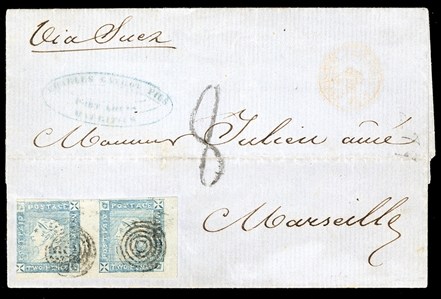 Via Suez
PORT LOUIS
MAURITIUS
8
Monsieur Julien aîné
Marseille
POSTAGE POSTAGE
TWO PENCE TWO PENCE